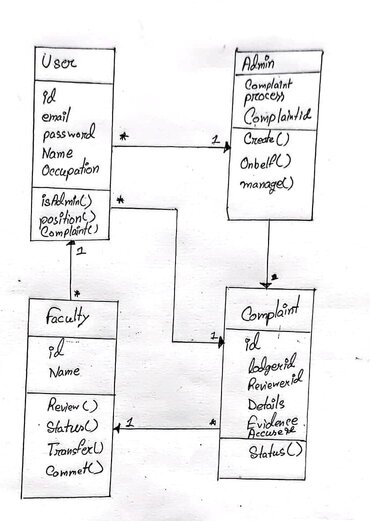 User
id
email
password
Name
Occupation
isAdmin()
position()
Complaint()
Admin
Complaint
process
Complaintid
Create()
Onbelf()
manage()
*
1
*
1
*
1
*
Faculty
id
Name
Review()
Status()
Transfer()
Commet()
1
*
Complaint
id
lodgerid
Reviewerid
Details
Evidence
Accuser
Status()